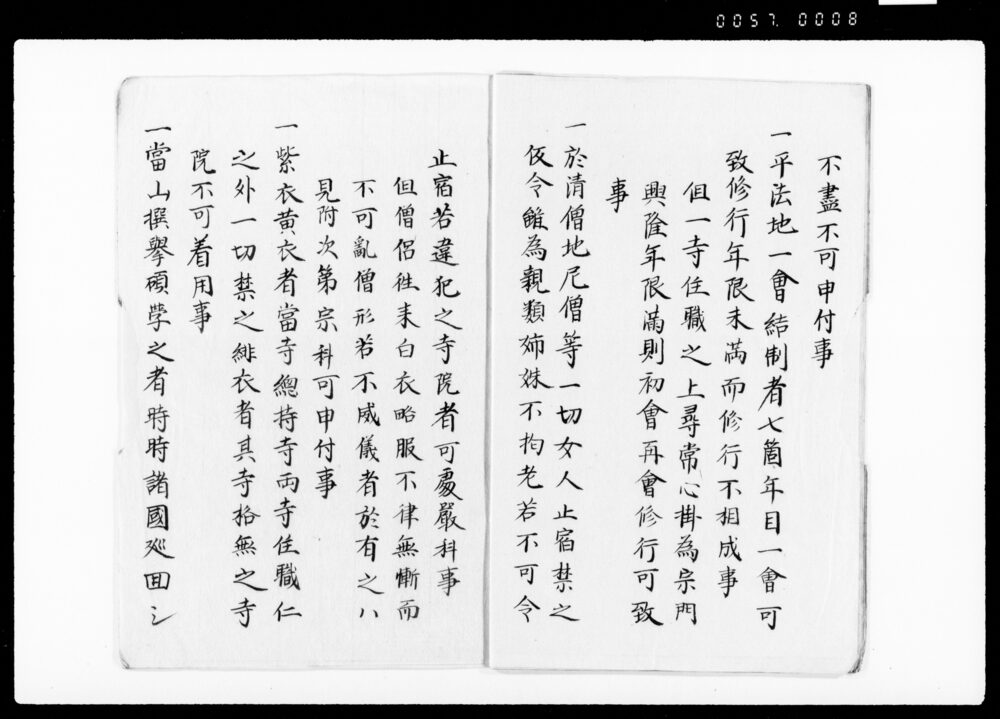 0057.0008
不盡不可申付事
一平法地一會結制者七箇年目一會可
致修行年限未満而修行不相成事
但一寺住職之上尋常心掛為宗門
興隆年限滿則初會再會修行可致
事
一於清僧地尼僧等一切女人止宿禁之
仮令雖為親類姉妹不拘老若不可令
止宿若違犯之寺院者可處嚴科事
但僧侶徃来白衣略服不律無慚而
不可亂僧形若不威儀者於有之ハ
見附次第宗科可申付事
一紫衣黄衣者當寺總持寺両寺住職仁
之外一切禁之緋衣者其寺格無之寺
院不可着用事
一當山撰擧碩學之者時時諸國廵囬シ